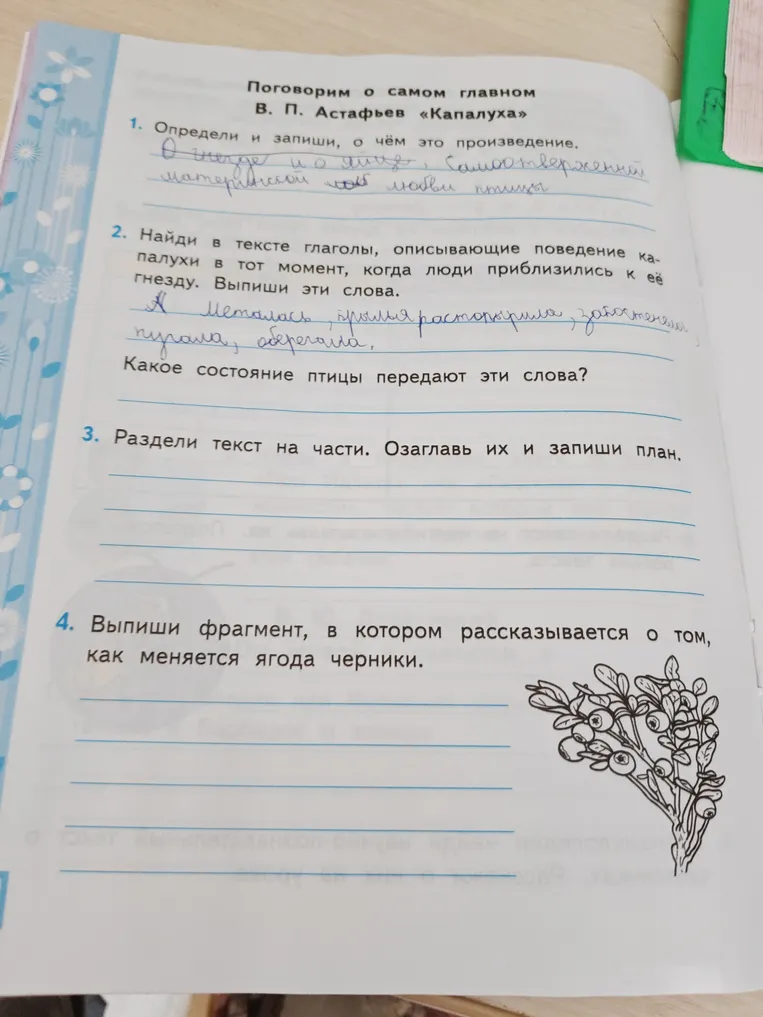 Поговорим о самом главном
В. П. Астафьев «Капалуха»
1. Определи и запиши, о чём это произведение.
О гнезде и о яйце, самоотверженной
материнской любви птицы
2. Найди в тексте глаголы, описывающие поведение ка-
палухи в тот момент, когда люди приблизились к её
гнезду. Выпиши эти слова.
Металась, крылья растопырила,
пугала, оберегала.
Какое состояние птицы передают эти слова?
3. Раздели текст на части. Озаглавь их и запиши план.
4. Выпиши фрагмент, в котором рассказывается о том,
как меняется ягода черники.